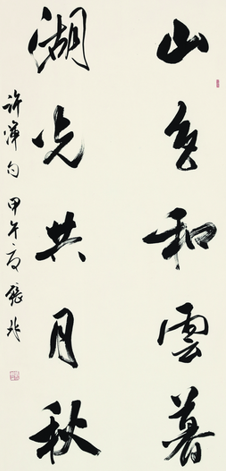 山色和雲暮
湖光共月秋
許渾句 甲午夏 張兆